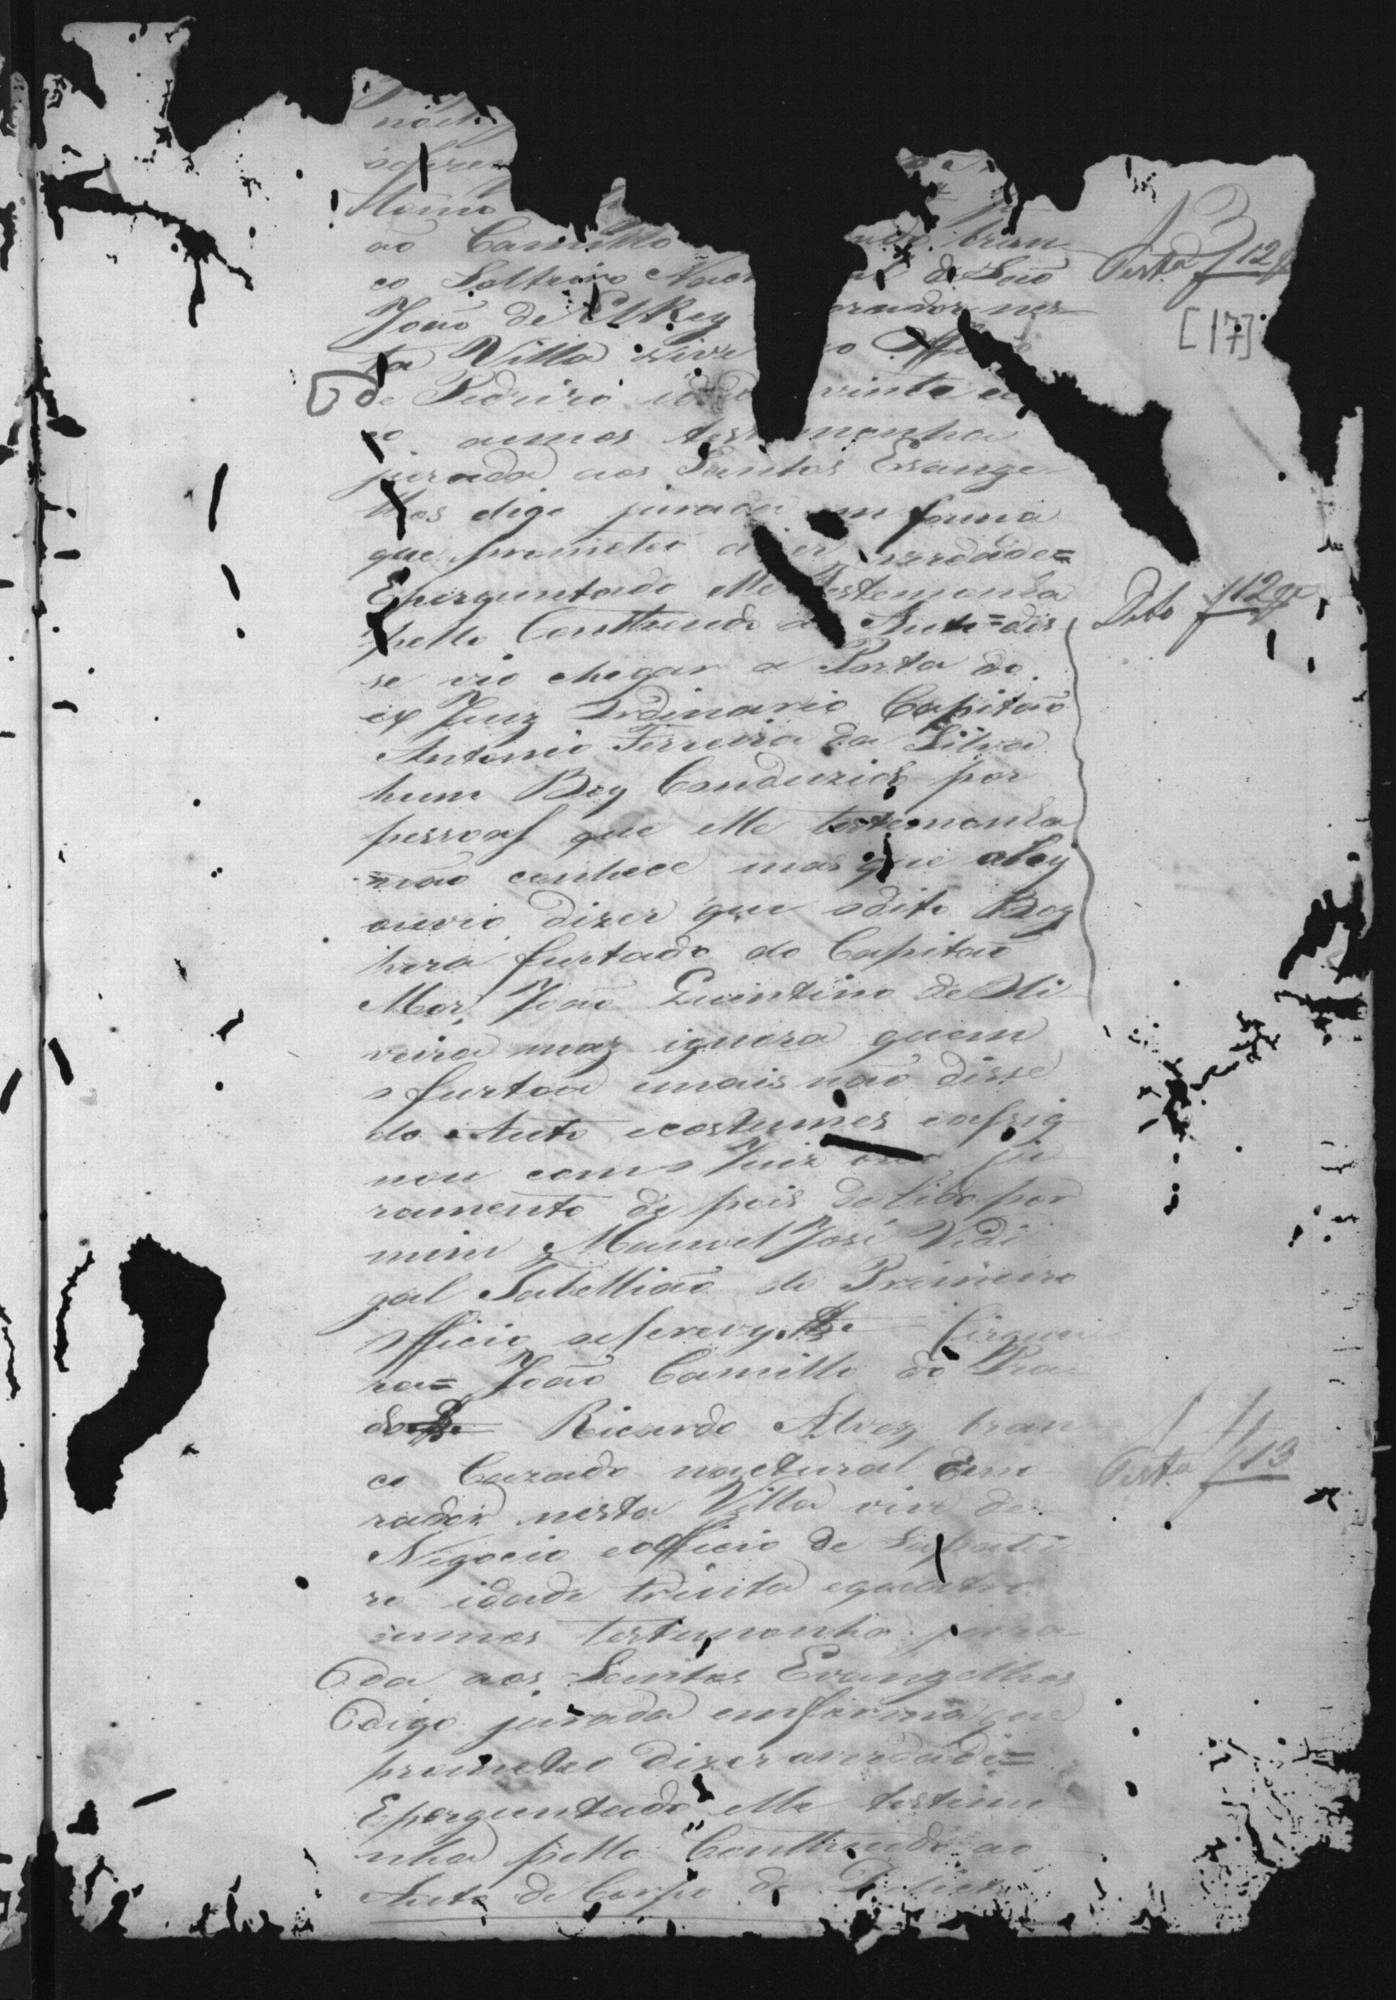 ao Camillo bran
co Solteiro São
João de ElRey orador nes
ta Villa vive do Officio
de Pedreiro idade vinte e
annos testemonha
jurada aos Santos Evange
lhos digo jurada em forma
que prometeo dizer verdade=
Eperguntado elle testemonha
pello Conttheudo do Auto= dis
se vio chegar a Porta do
ex Juiz Ordinario Capitaõ
Antonio Ferreira da Silva
hum Boy Conduzido por
pessoas que elle testemonha
não conhece mas que
ouvio dizer que odito Boy
hera furtado do Capitaõ
Mor João Quintino de Oli
veira maz ignora quem
o furtou emais naõ disse
do Auto ecostumes easig
nou com o Juiz ju
ramento de pois de lido por
mim Manoel José Vidi
gal Tabelliaõ do Primeiro
Officio oescrevy
ra= João Camillo do Pra
do Ricardo Alvez bran
co Cazado nactural emo
rador nesta Villa vive de
Negocio eofficio de Sapatei
ro idade trinta equatro
annos testemonha jura
da aos Santos Evangelhos
digo jurada emforma que
prometeo dizer averdade=
Eperguntado elle testemo
nha pello Conttheudo no
Auto de Corpo de Delicto
Testa f 12
[17]
Dito f 12
Testa f 13